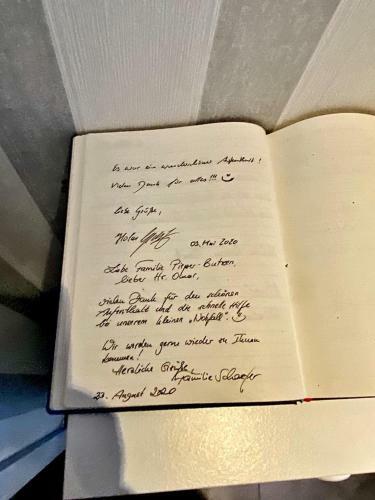 Es war ein wunderschöner Aufenthalt!
Vielen Dank für alles!!!
Liebe Grüße,
03. Mai 2020
Liebe Familie Pieper-Butzon,
lieber Hr. Omar,
vielen Dank für den schönen
Aufenthalt und die schnelle Hilfe
bei unserem kleinen „Notfall".
Wir werden gerne wieder zu Ihnen
kommen!
Herzliche Grüße
Familie Schaefer
23. August 2020